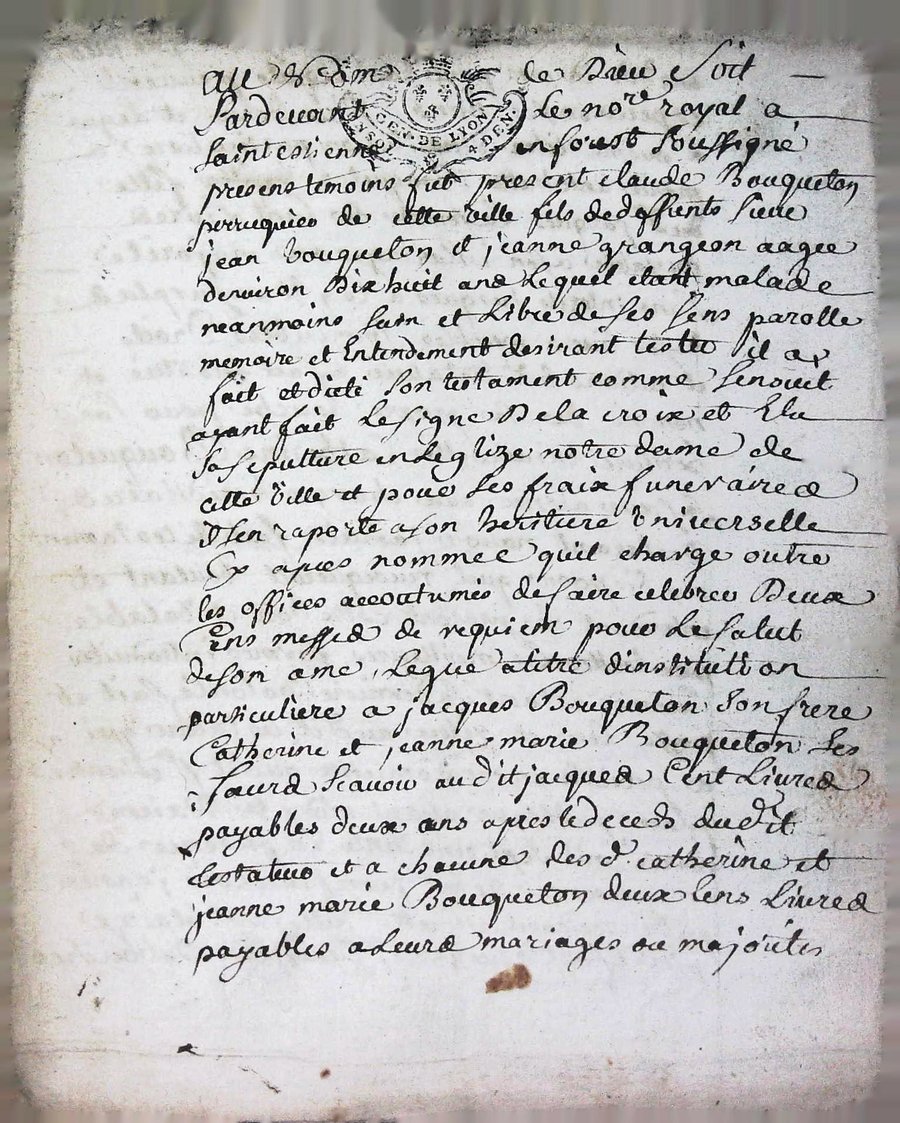 au Nom de Dieu Soit
Pardevant le nore royal a
Saintestienne enforest Soussigné
presens temoins fut present claude Bouqueton
perruquier de cette ville fils de deffunts Sieur
jean bouqueton et jeanne grangeon aagee
denviron Dix huit ans Lequel etant malade
neanmoins Sain et Libre de Ses Sens parolle
memoire et Entendement desirant tester il a
fait et dicté Son testament comme Sensuit
ayant fait Le Signe De la croix et Elu
Sa Sepulture en Leglize notre dame de
cette ville et pour Ses fraix funeraires
il Sen raporte a Son heritiere Universelle
Cy apres nommee quil charge outre
les offices accoutumés de faire celebrer Deux
Cens messes de requiem pour Le Salut
de Son ame, Legue a titre dinstitution
particuliere a jacques Bouqueton Son frere
Catherine et jeanne marie Bouqueton Ses
Sœurs Scavoir au dit jacques Cent Livres
payables deux ans apres le deceds du dit
testateur et a chacune des d. catherine et
jeanne marie Bouqueton deux Cens Livres
payables a Leurs mariages ou majorites
GEN. DE LYON
4 DEN.